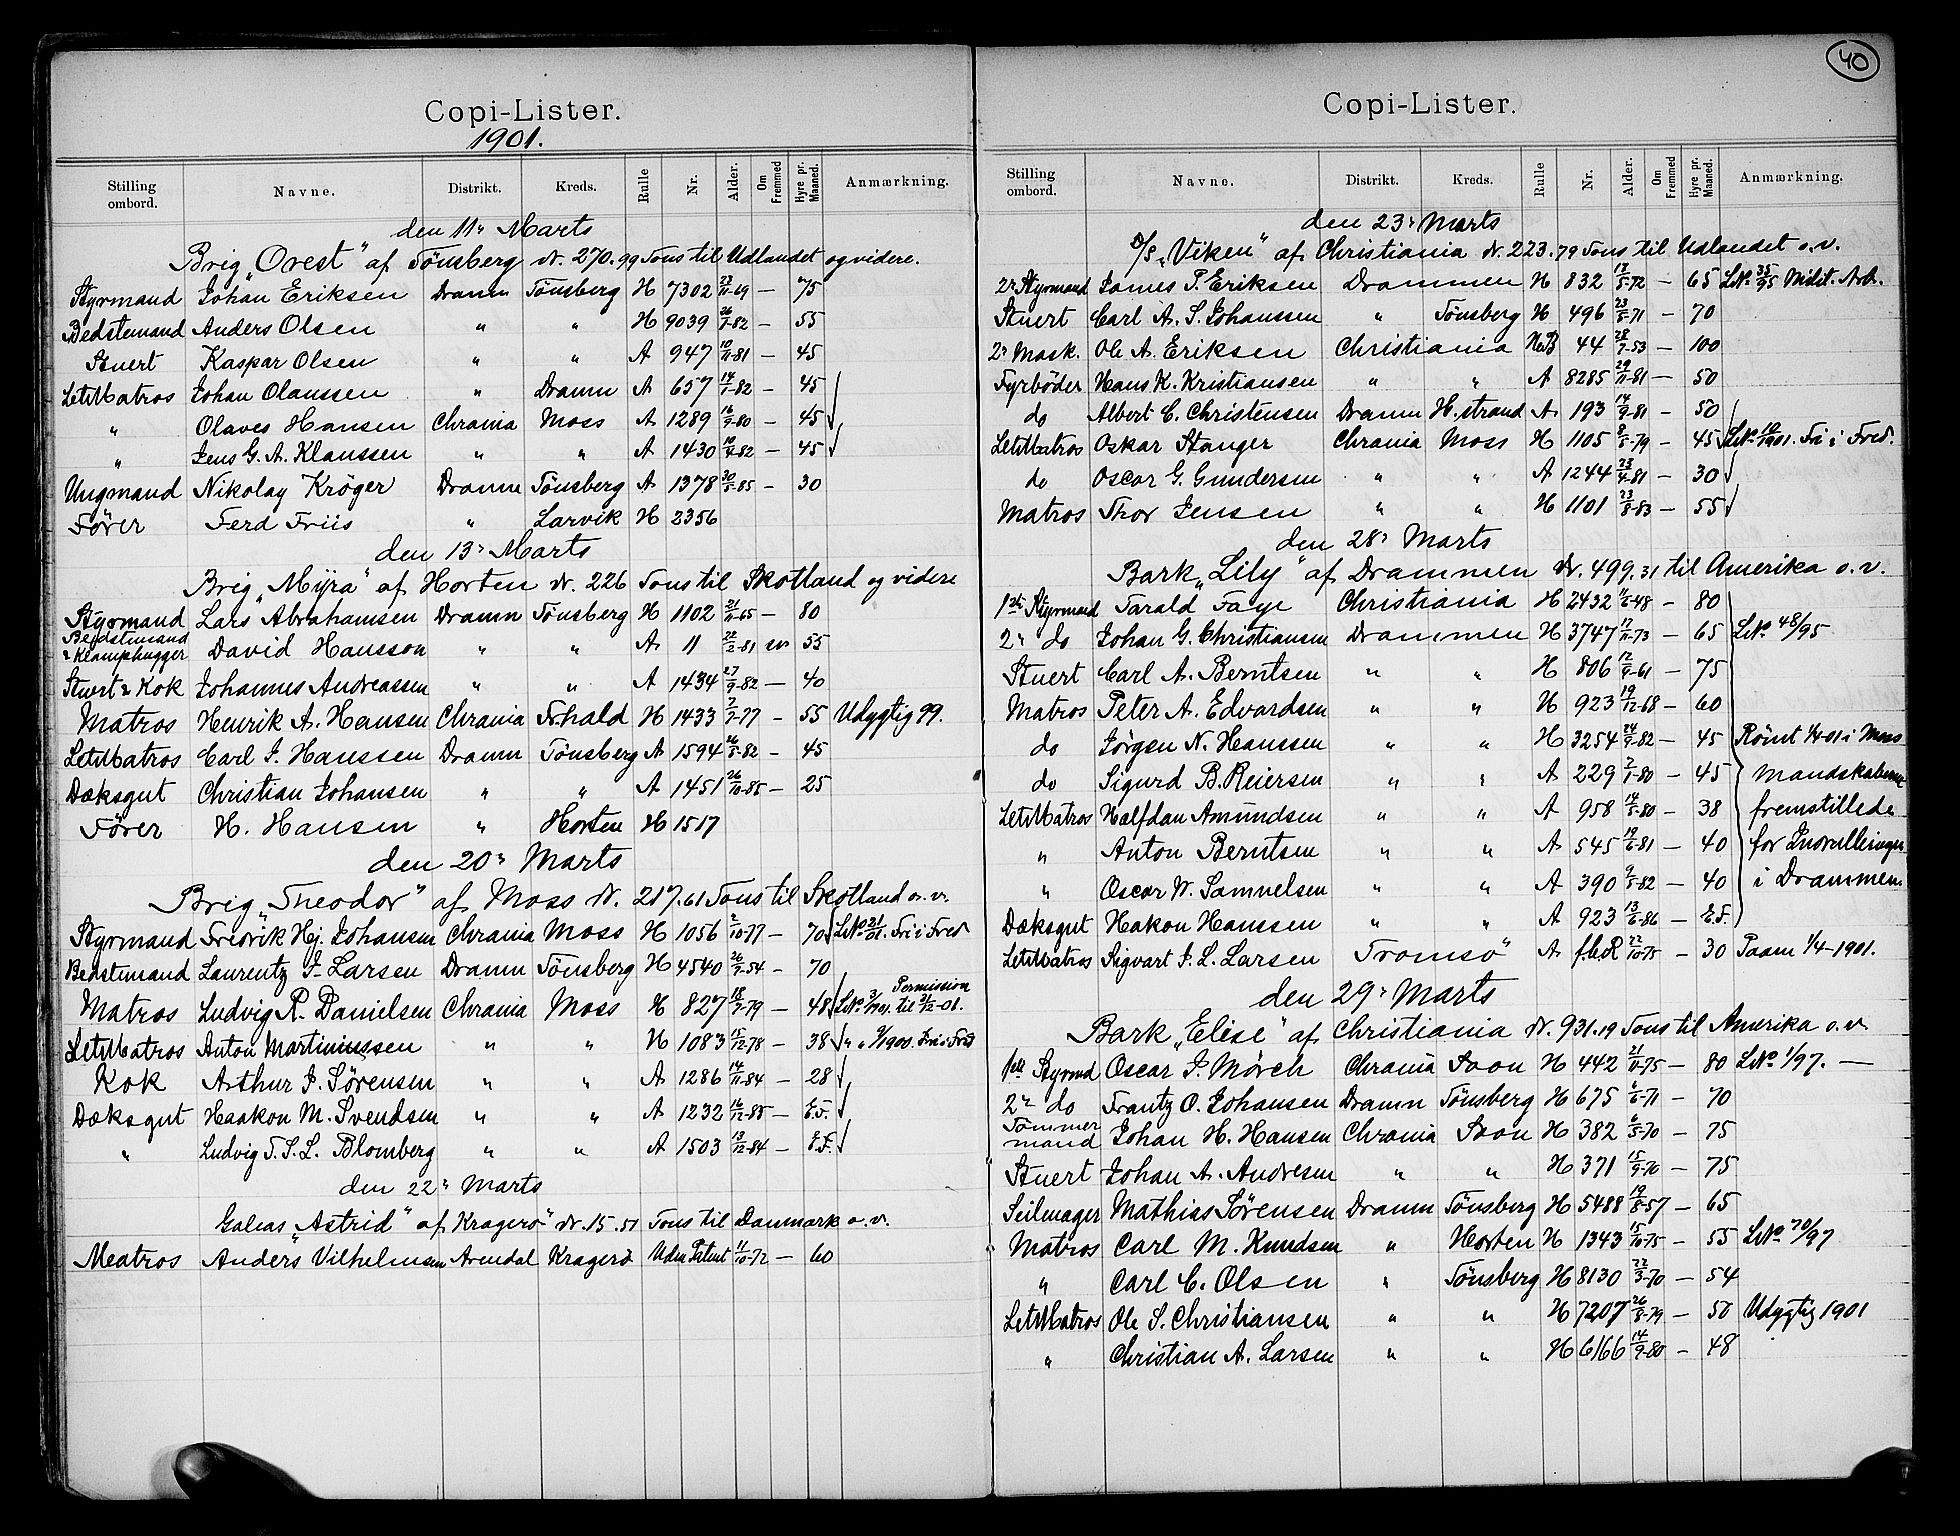 40
Copi-Lister.
1901.
Stilling ombord. Navne. Distrikt. Kreds. Rulle Nr. Alder. Om Fremmed Hyre pr. Maaned. Anmærkning.
den 11' Marts
Brig „Orest" af Tönsberg Dr. 270.99 Tons til Udlandet og videre.
Styrmand Johan Eriksen Dramn Tönsberg H 7302 23/11-69 — 75
Bedstemand Anders Olsen " " H 9039 26/7-82 — 55
Stuert Kaspar Olsen " " A 947 10/11-81 — 45
LetMatros Johan Olaussen " Dramn A 657 14/7-82 — 45
" Olaves Hansen Chrania Moss A 1289 16/9-80 — 45
" Jens G. A. Klaussen " " A 1430 10/4-82 — 45
Ungmand Nikolay Kröger Dramn Tönsberg A 1378 30/5-85 — 30
Förer Ferd Friis " Larvik H 2356
den 13' Marts
Brig „Mÿra" af Horten Dr. 226 Tons til Skotland og videre
Styrmand Lars Abrahamsen Dramn Tönsberg H 1102 21/11-65 — 80
Bedstemand & Klamphugger David Hansson " " A 11 22/2-81 55
Stuert & Kok Johannes Andreassen " " A 1434 27/9-82 — 40
Matros Henrik A. Hansen Chrania Frhald H 1433 7/7-77 — 55 Udygtig 99.
LetMatros Carl J. Hanssen Dramn Tönsberg A 1594 26/8-82 — 45
Dæksgut Christian Johansen " " A 1451 26/10-85 — 25
Förer H. Hansen " Horten H 1517
den 20' Marts
Brig „Theodor" af Moss Dr. 217.61 Tons til Skotland o. v.
Styrmand Fredrik Hj. Johansen Chrania Moss H 1056 2/10-77 — 70 LNo. 21/01. Fri i Fred
Bedstemand Laurentz J. Larsen Dramn Tönsberg H 4540 26/9-54 — 70
Matros Ludvig R. Danielsen Chrania Moss H 827 18/7-79 — 48 LNo. 3/1901. Permission til 31/12-01.
LetMatros Anton Martiniussen " " H 1083 15/12-78 — 38 " " /1900. Fri i Fred
Kok Arthur J. Sörensen " " A 1286 14/11-84 — 28
Dæksgut Haakon M. Svendsen " " A 1232 16/12-85 — E.F.
" Ludvig T. S. L. Blomberg " " A 1503 13/12-84 — E.F.
den 22' Marts
Galeas „Astrid" af Kragerö Dr. 15.51 Tons til Danmark o. v.
Matros Anders Vilhelmsen Arendal Kragerö Uden Patent 11/10-72 — 60
Copi-Lister.
Stilling ombord. Navne. Distrikt. Kreds. Rulle Nr. Alder. Om Fremmed Hyre pr. Maaned. Anmærkning.
den 23' Marts
D/S „Viken" af Christiania Dr. 223.79 Tons til Udlandet o. v.
2' Styrmand James T. Eriksen Drammen H 832 17/5-72 — 65 LNo. 35/95 Milit. Arb.
Stuert Carl A. S. Johanssen " Tönsberg H 496 23/8-71 — 70
2' Mask. Ole A. Eriksen Christiania 44 28/7-53 — 100
Fyrböder Hans K. Kristiansen " " A 8285 29/11-81 — 50
do Albert C. Christensen Dramn H.strand A 193 14/9-81 — 50
LetMatros Oskar Stanger Chrania Moss H 1105 8/5-79 — 45 LNo. 10/1901. Fri i Fred.
do Oscar G. Gundersen " " A 1244 23/4-81 — 30
Matros Thor Jensen " " H 1101 23/8-83 — 55
den 28' Marts
Bark „Lily" af Drammen Dr. 499.31 til Amerika o. v.
1ste Styrmand Tarald Faye Christiania H 2432 11/6-48 — 80
2' do Johan G. Christiansen Drammen H 3747 17/11-73 — 65 LNo. 48/95
Stuert Carl A. Berntsen " " H 806 12/9-61 — 75
Matros Peter A. Edvardsen " " H 923 19/12-68 — 60
do Jörgen N. Hanssen " " H 3254 24/9-82 — 45 Römt 1/4-01 i Moss
do Sigurd B. Reiersen " " A 229 7/1-80 — 45 Mandskaberne
LetMatros Halfdan Amundsen " " A 958 14/5-80 — 38 fremstillede
" Anton Berntsen " " A 545 19/6-81 — 40 for Indrulleringen
" Oscar W. Samuelsen " " A 390 9/5-82 — 40 i Drammen
Dæksgut Hakon Hanssen " " A 923 13/6-86 — E.F.
LetMatros Sigvart J. L. Larsen Tromsö A f.b.R 22/10-75 — 30 Paam 1/4-1901.
den 29' Marts
Bark „Elise" af Christiania Dr. 931.19 Tons til Amerika o. v.
1ste Styrmd Oscar J. Mörch Chrania Soon H 442 21/11-75 — 80 LNo. 1/97. —
2' do Frantz O. Johansen Dramn Tönsberg H 675 6/6-71 — 70
Tömmermand Johan H. Hansen Chrania Soon H 382 6/5-70 — 75
Stuert Johan A. Andresen " " H 371 15/9-70 — 75
Seilmager Mathias Sörensen Dramn Tönsberg H 5488 19/8-57 — 65
Matros Carl M. Knudsen " Horten H 1343 15/10-75 — 55 LNo. 70/97
" Carl C. Olsen " Tönsberg H 8130 22/3-70 — 54
LetMatros Ole S. Christiansen " " H 7207 26/8-79 — 50 Udygtig 1901
" Christian A. Larsen " " H 6166 14/9-80 — 48